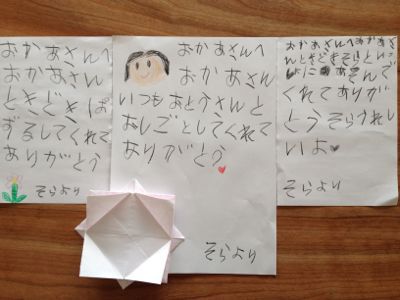 おかあさんへ
おかあさん
ときどきぱ
ずるしてくれて
ありがとう
そらより
おかあさんへ
おかあさん
いつもおとうさんと
おしごとしてくれて
ありがとう
そらより
おかあさんへおかあさん
ときどきそらとい
っしょにあそんで
くれてありが
とうそらうれし
いよ
そらより